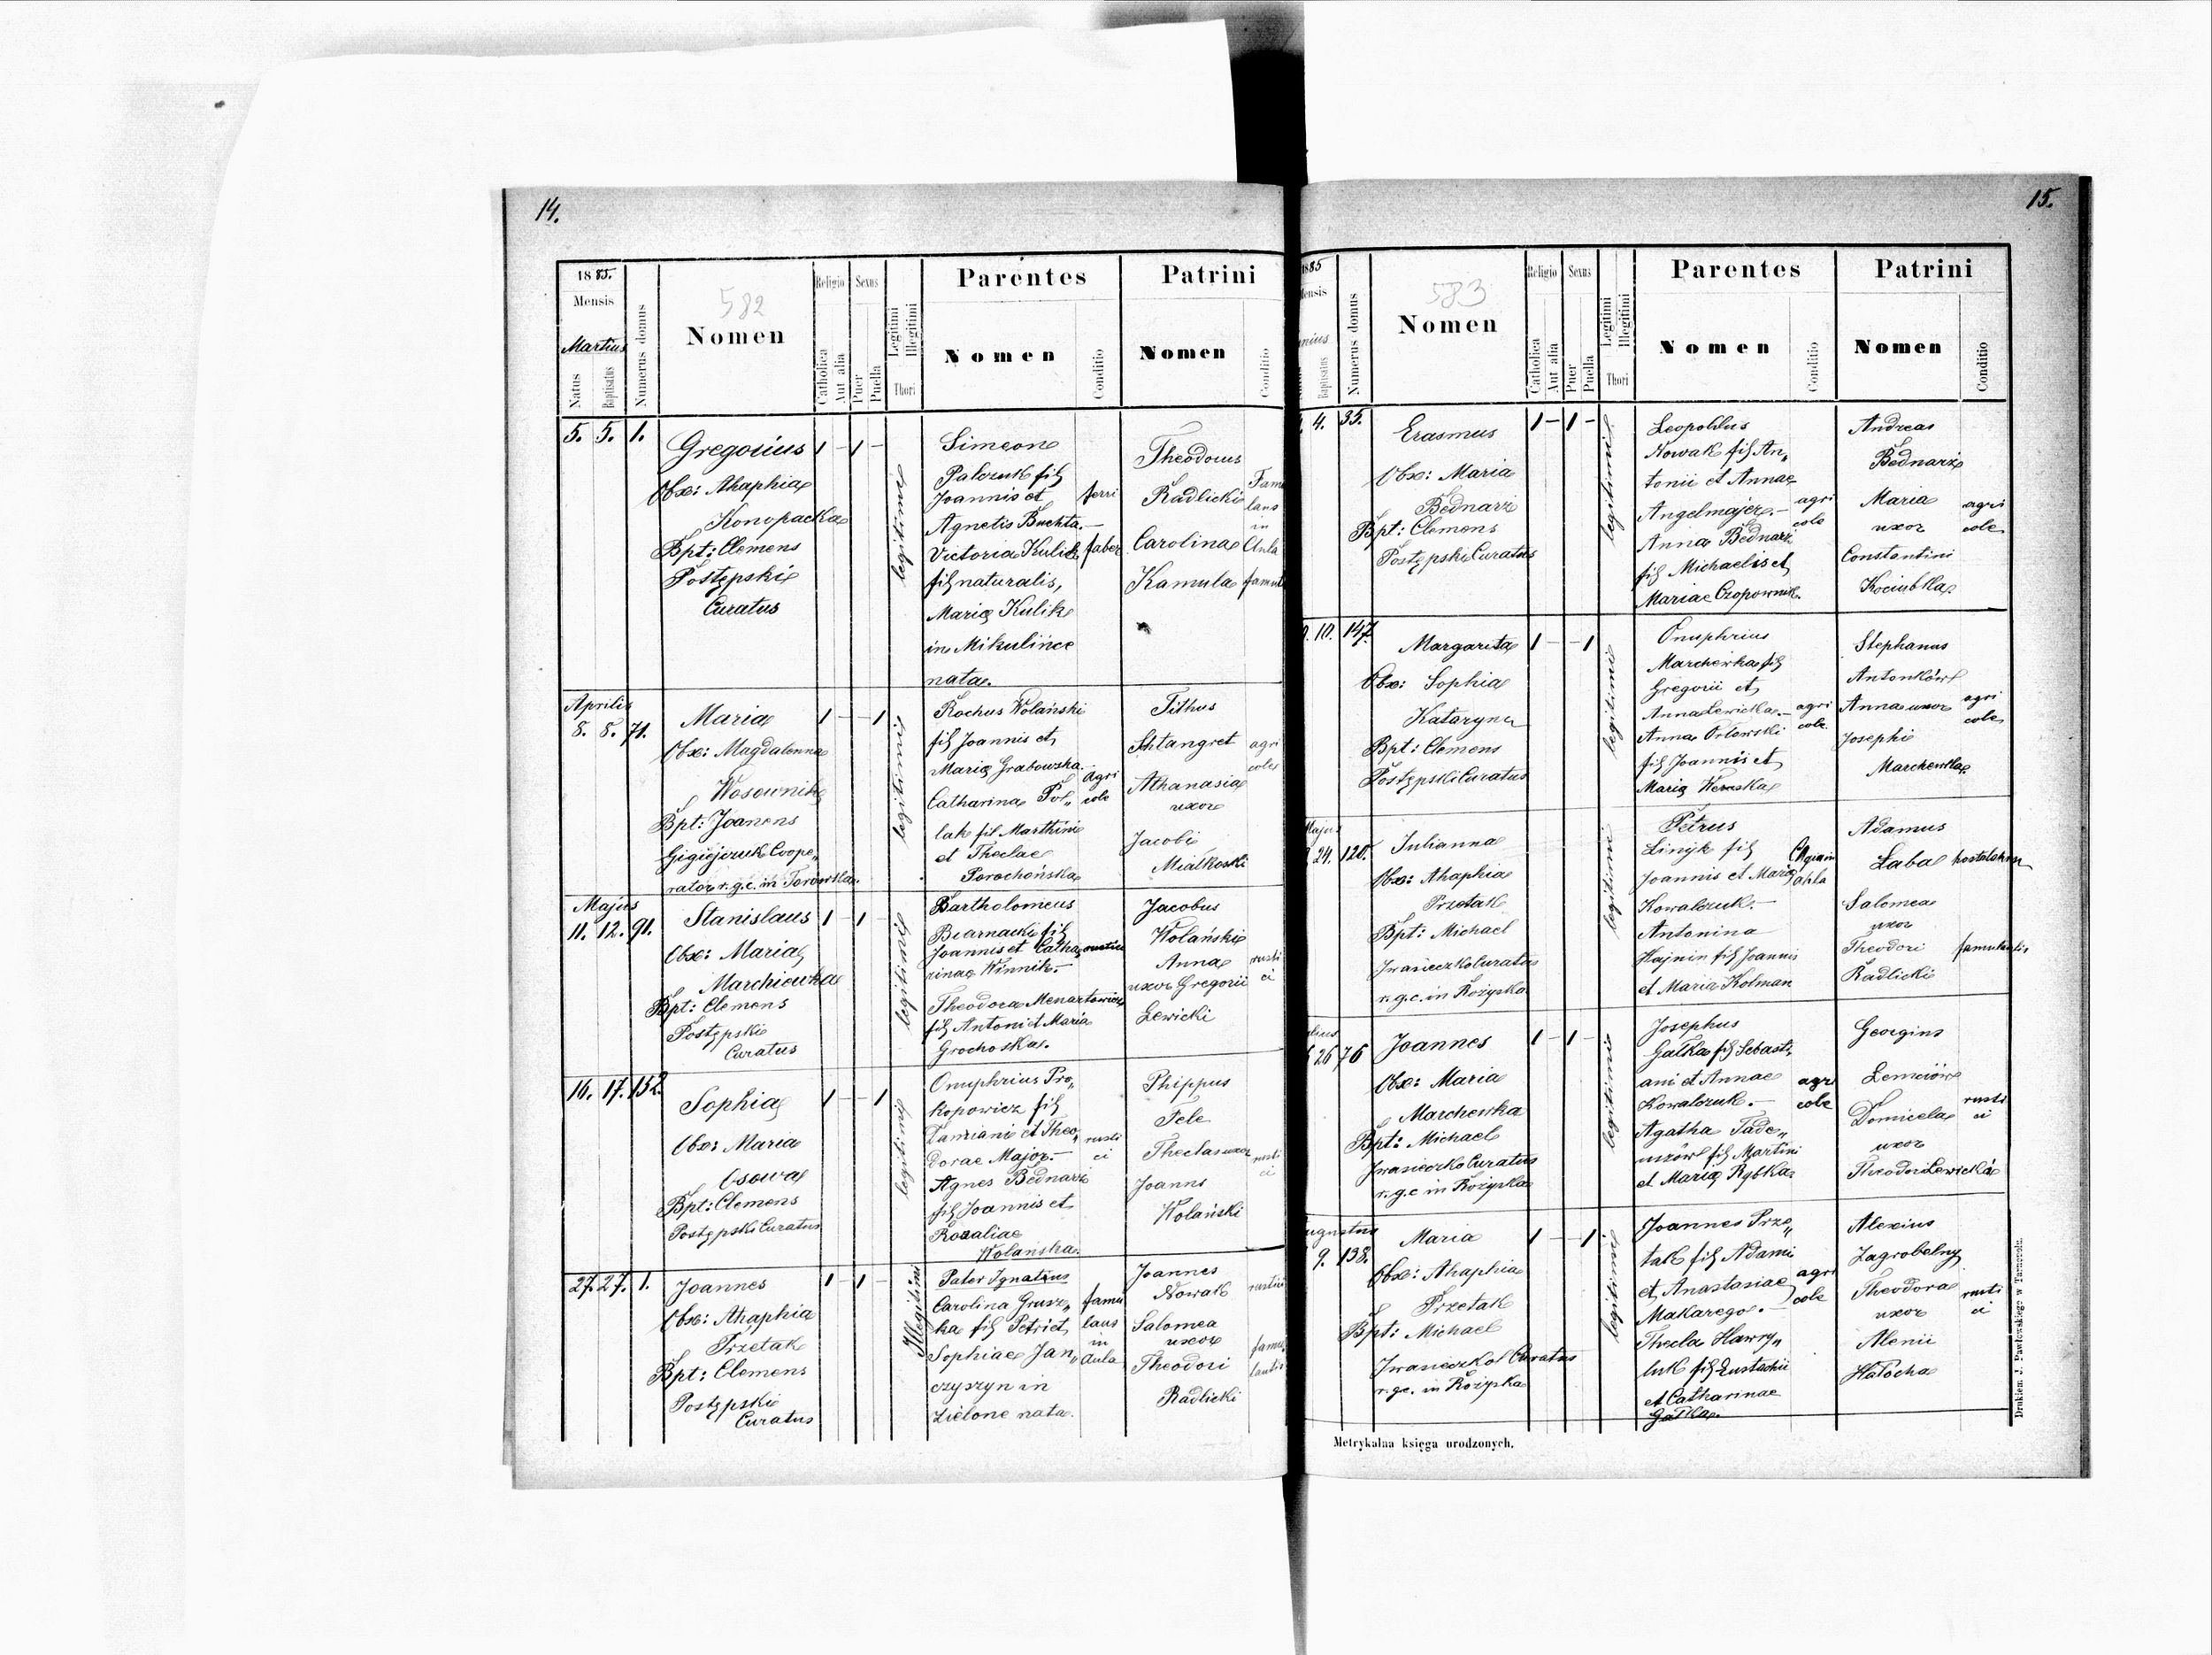 14.
1885.
Mensis
Martius
Natus
Baptisatus
Numerus domus
582
Nomen
Religio
Catholica
Aut alia
Sexus
Puer
Puella
Legitimi
Illegitimi
Thori
Parentes
Nomen
Conditio
Patrini
Nomen
Conditio
5. 5. 1.
Gregorius
Obx: Ahaphia
Konopacka
Bpt: Clemens
Postępski
Curatus
1 - 1 -
legitimi
Simeone
Palczuk fil
Joannis et
Agnetis Buchta.-
Victoria Kulik
fil naturalis,
Marią Kulik
in Mikulince
nata.
ferri
faber
Theodorus
Radlicki
Carolina
Kamula
Fam
lans
in
Aula
famul
Aprilis
8. 8. 71.
Maria
Obx: Magdalenna
Wosownik
Bpt: Joanens
Gigiejczuk Coope„
rator r.g.c. in
1 - - 1
legitimi
Rochus Wolański
fil Joannis et
Marią Grabowska.
Catharina Pol„
lak fil Marthini
et Theclae
Porochońska
agri
cole
Tithus
Shtangret
Athanasia
uxor
Jacobi
Miałkoski
agri
cole
Majus
11. 12. 91.
Stanislaus
Obx: Maria
Marchiewka
Bpt: Clemens
Postępski
Curatus
1 - 1
legitimi
Bartholomeus
Biarnacki fil
Joannis et Catha
rinae Winnik.-
Theodora Menartowicz
fil Antoni et Maria
Grochoska.
rustici
Jacobus
Wolański
Anna
uxor Gregorii
Lewicki
rusti
ci
16. 17. 152.
Sophia
Obx: Maria
Osowa
Bpt: Clemens
Postępski Curatus
1 - - 1
legitimi
Onuphrius Pro„
kopowicz fil
Damiani et Theo„
dorae Major.-
Agnes Bednarz
fil Joannis et
Rozaliae
Wolańska.
rusti
ci
Phippus
Fele
Thecla uxor
Joanns
Wolański
rusti
ci
27. 27. 1.
Joannes
Obx: Ahaphia
Przetak
Bpt: Clemens
Postępski
Curatus
1 - 1 -
Illegitimi
Pater Ignatius
Carolina Grusz„
ka fil Petri et
Sophiae Jan„
czyszyn in
Zielone nata.
famu
laus
in
Aula
Joannes
Nowak
Salomea
uxor
Theodori
Radlicki
rustici
famu
lantis
15.
1885
Mensis
Baptisatus
Numerus domus
583
Nomen
Religio
Catholica
Aut alia
Sexus
Puer
Puella
Legitimi
Illegitimi
Thori
Parentes
Nomen
Conditio
Patrini
Nomen
Conditio
4. 35.
Erasmus
Obx: Maria
Bednarz
Bpt: Clemens
Postępski Curatus
1 - 1 -
legitimi
Leopoldus
Nowak fil An„
tonii et Annae
Angelmajer.-
Anna Bednarz
fil Michaelis et
Mariae Czopownik
agri
cole
Andreas
Bednarz
Maria
uxor
Constantini
Kociubka
agri
cole
10. 147.
Margareta
Obx: Sophia
Kataryna
Bpt: Clemens
Postępski Curatus
1 - - 1
legitimi
Onuphrius
Marchewka fil
Gregorii et
Anna Lewicka.-
Anna Orlowski
fil Joannis et
Marią Weraska
agri
cole
Stephanus
Antonków
Anna uxor
Josephi
Marchewka
agri
cole
Majus
24. 120.
Julianna
Obx: Ahaphia
Przetak
Bpt: Michael
Iwasieczko Curatus
r.g.c. in Rożyska
legitimi
Petrus
Linyk fil
Joannis et Marią
Kowalczuk.-
Antonina
Hajnin fil Joannis
et Maria Kolman
Adamus
Łaba
Salomea
uxor
Theodori
Radlicki
famulantis
26 76
Joannes
Obx: Maria
Marchewka
Bpt: Michael
Iwasieczko Curatus
r.g.c in Rożyska
1 - 1 -
legitimi
Josephus
Gałka fil Sebasti„
ani et Annae
Kowalczuk.-
Agatha Tade„
uszów fil Martini
et Marią Rybka.
agri
cole
Georgius
Domicela
uxor
Theodori Lewicka
rusti
ci
9. 138.
Maria
Obx: Ahaphia
Przetak
Bpt: Michael
Iwasieczko Curatus
r.g.c. in Rożyska
1 - - 1
legitimi
Joannes Prze„
tak fil Adami
et Anastasiae
Makarego.-
Thecla Hawry„
luk fil Eustachii
et Catharinae
Gałka.
agri
cole
Alexius
Zagrobelny
Theodora
uxor
Alenii
Hałocha
rusti
ci
Metrykalna księga urodzonych.
Drukiem J. Pawłowskiego w Tarnopolu.